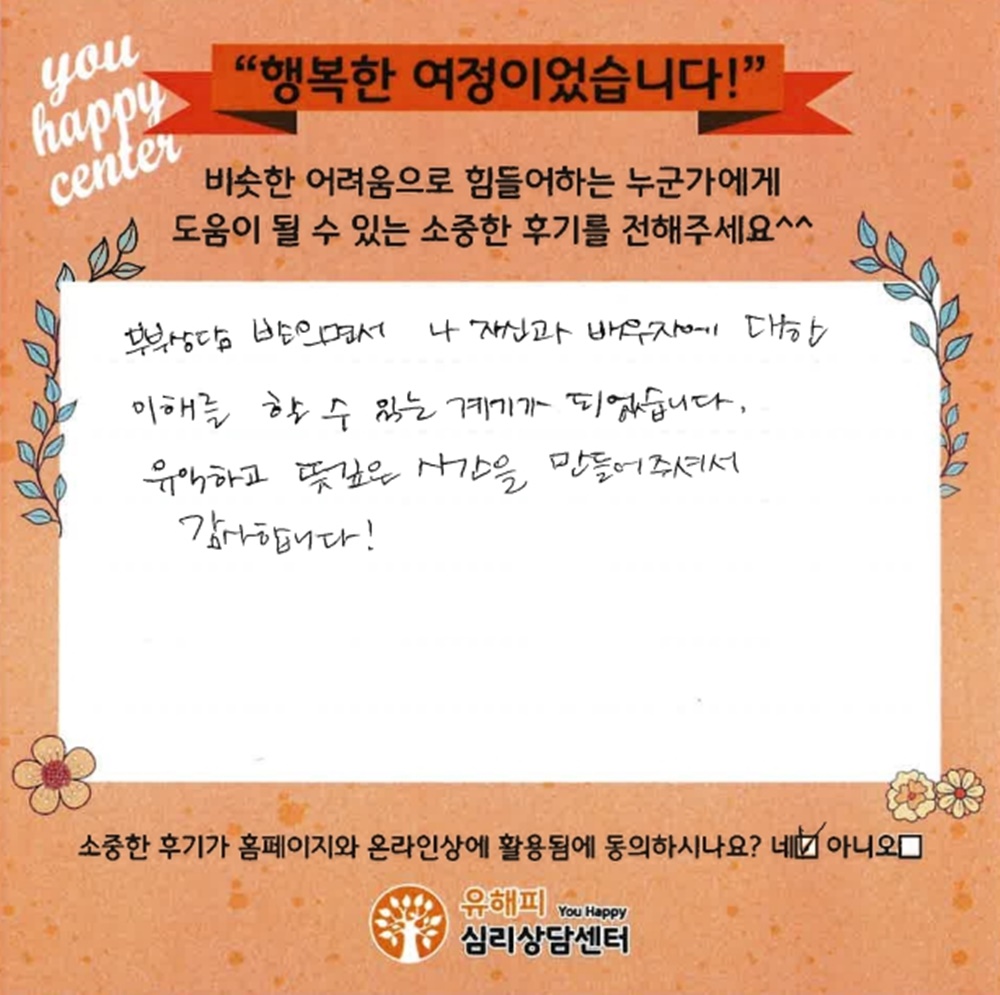 you
happy
center
“행복한 여정이었습니다!”
비슷한 어려움으로 힘들어하는 누군가에게
도움이 될 수 있는 소중한 후기를 전해주세요^^
부부상담 받으면서 나 자신과 배우자에 대한
이해를 할 수 있는 계기가 되었습니다.
유익하고 뜻깊은 시간을 만들어주셔서
감사합니다!
소중한 후기가 홈페이지와 온라인상에 활용됨에 동의하시나요? 네☑ 아니오☐
유해피 You Happy
심리상담센터